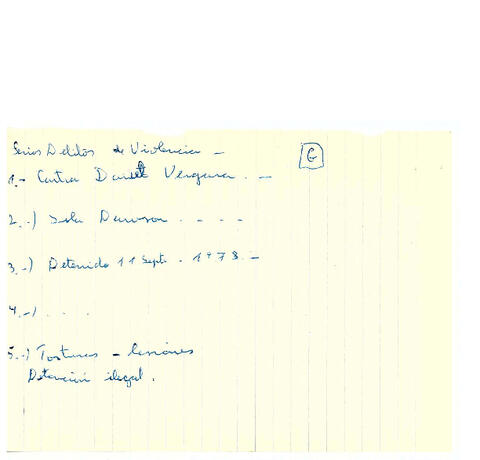 Serios Delitos de Violencia -
G
1.- Contra Daniel Vergara. -
2.-) Isla Dawson . . . .
3.-) Detenido 11 Sept. 1973.-
4.-) . . .
5.-) Torturas - lesiones
Detención ilegal.